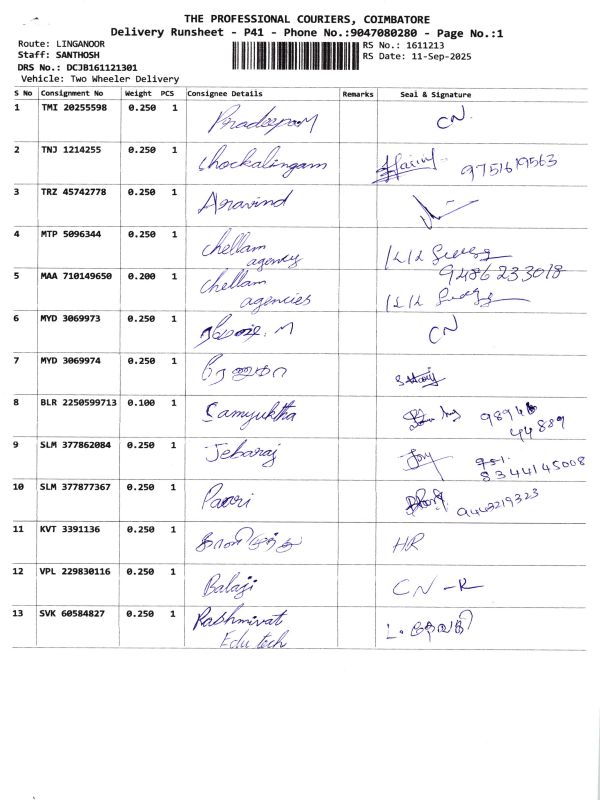 THE PROFESSIONAL COURIERS, COIMBATORE
Delivery Runsheet - P41 - Phone No.:9047080280 - Page No.:1
Route: LINGANOOR RS No.: 1611213
Staff: SANTHOSH RS Date: 11-Sep-2025
DRS No.: DCJB161121301
Vehicle: Two Wheeler Delivery
S No Consignment No Weight PCS Consignee Details Remarks Seal & Signature
1 TMI 20255598 0.250 1 Pradeepa M CN
2 TNJ 1214255 0.250 1 chockalingam 9751619563
3 TRZ 45742778 0.250 1 Aravind
4 MTP 5096344 0.250 1 chellam
agency
9486233018
5 MAA 710149650 0.200 1 chellam
agencies
6 MYD 3069973 0.250 1 CN
7 MYD 3069974 0.250 1
8 BLR 2250599713 0.100 1 Samyuktha
44889
9 SLM 377862084 0.250 1 Jebaraj
8344145008
10 SLM 377877367 0.250 1 9443219323
11 KVT 3391136 0.250 1 காளிமுத்து HR
12 VPL 229830116 0.250 1 Balaji CN-R
13 SVK 60584827 0.250 1 Rashmivat
Edu tech